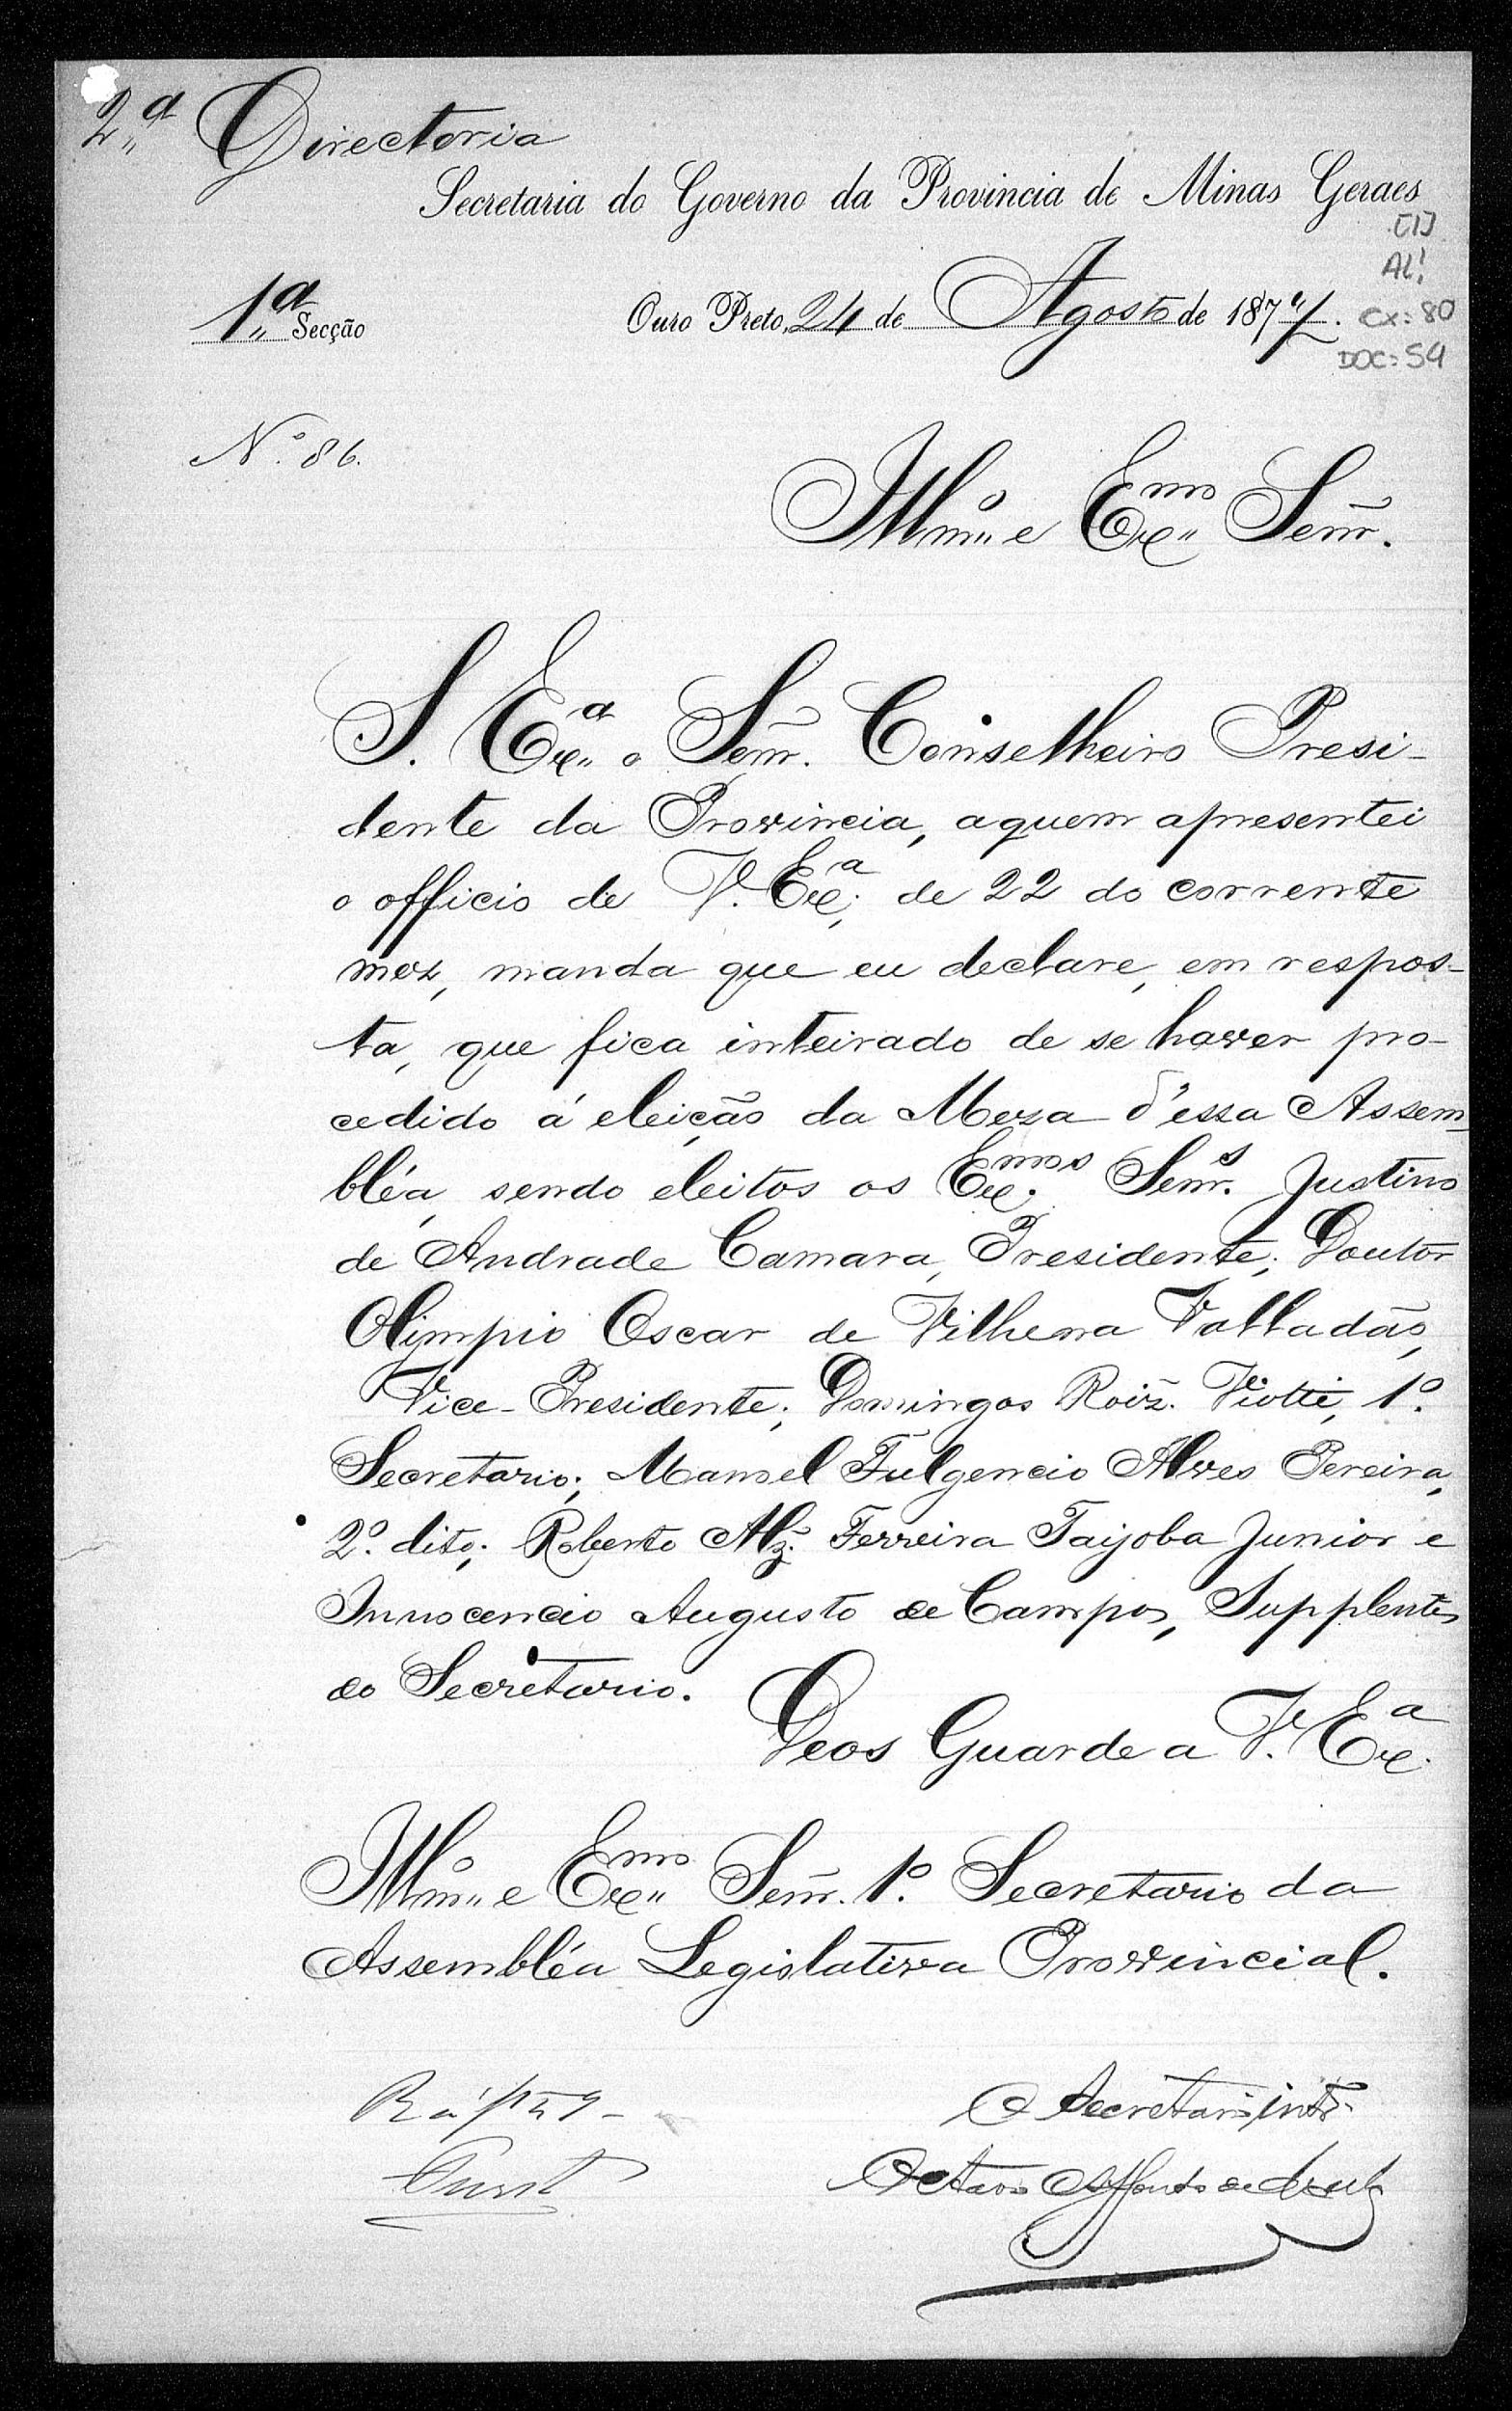 2ª Directoria
Secretaria do Governo da Provincia de Minas Geraes
[1]
AL!
1ª Secção
Ouro Preto, 24 de Agosto de 1877.
CX: 80
DOC: 54
Nº 86.
Illmº e Exmo Senr.
S. Exª o Senr. Conselheiro Presi-
dente da Provincia, a quem apresentei
o officio de V. Exª, de 22 do corrente
mez, manda que eu declare, em respos-
ta, que fica inteirado de se haver pro-
cedido á eleição da Meza d'essa Assem-
bléa, sendo eleitos os Exmos Senrs. Justino
de Andrade Camara, Presidente; Doutor
Olimpio Oscar de Vilhena Valladão,
Vice-Presidente; Domingos Roiz. Viotti, 1º
Secretario; Manoel Fulgencio Alves Pereira,
2º dito; Roberto Alz. Ferreira Taijoba Junior e
Innocencio Augusto de Campos, Supplentes
do Secretario.
Deos Guarde a V. Exª
Illmº e Exmo Senr. 1º Secretario da
Assembléa Legislativa Provincial.
O Secretario intº